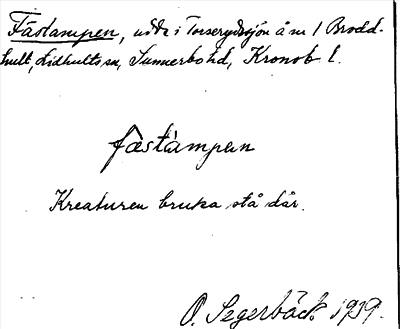 Fästampen, udde i Torserydssjön å m 1 Brodd-
hult, Lidhults sn, Sunnerbo hd, Kronob l.
fæstàmpen
Kreaturen bruka stå där.
O. Segerbäck 1919.